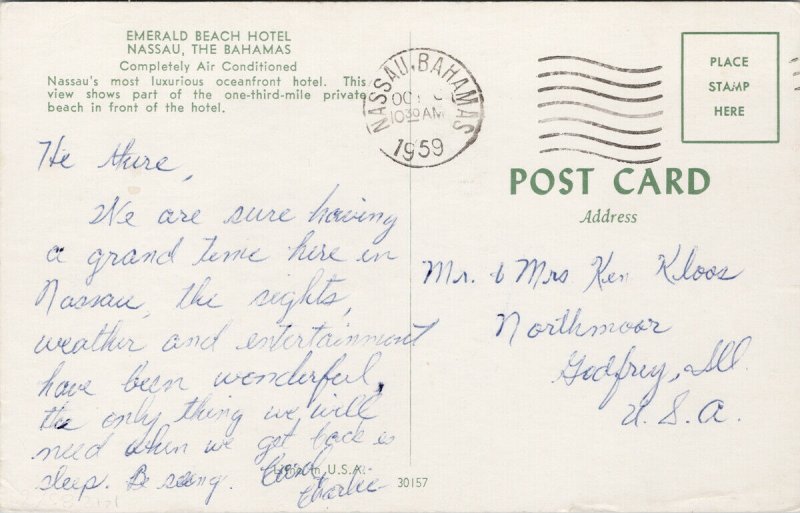 EMERALD BEACH HOTEL
NASSAU, THE BAHAMAS
Completely Air Conditioned
Nassau's most luxurious oceanfront hotel. This
view shows part of the one-third-mile private
beach in front of the hotel.
NASSAU, BAHAMAS
10 30 AM
1959
PLACE
STAMP
HERE
POST CARD
Address
He there,
We are sure having
a grand time here in
Nassau, the sights,
weather and entertainment
have been wonderful,
the only thing we will
need when we get back is
sleep. Be seeing.
Charlie
Mr. & Mrs Ken Kloos
Northmoor
Godfrey, Ill.
U. S. A.
in U.S.A.
30157